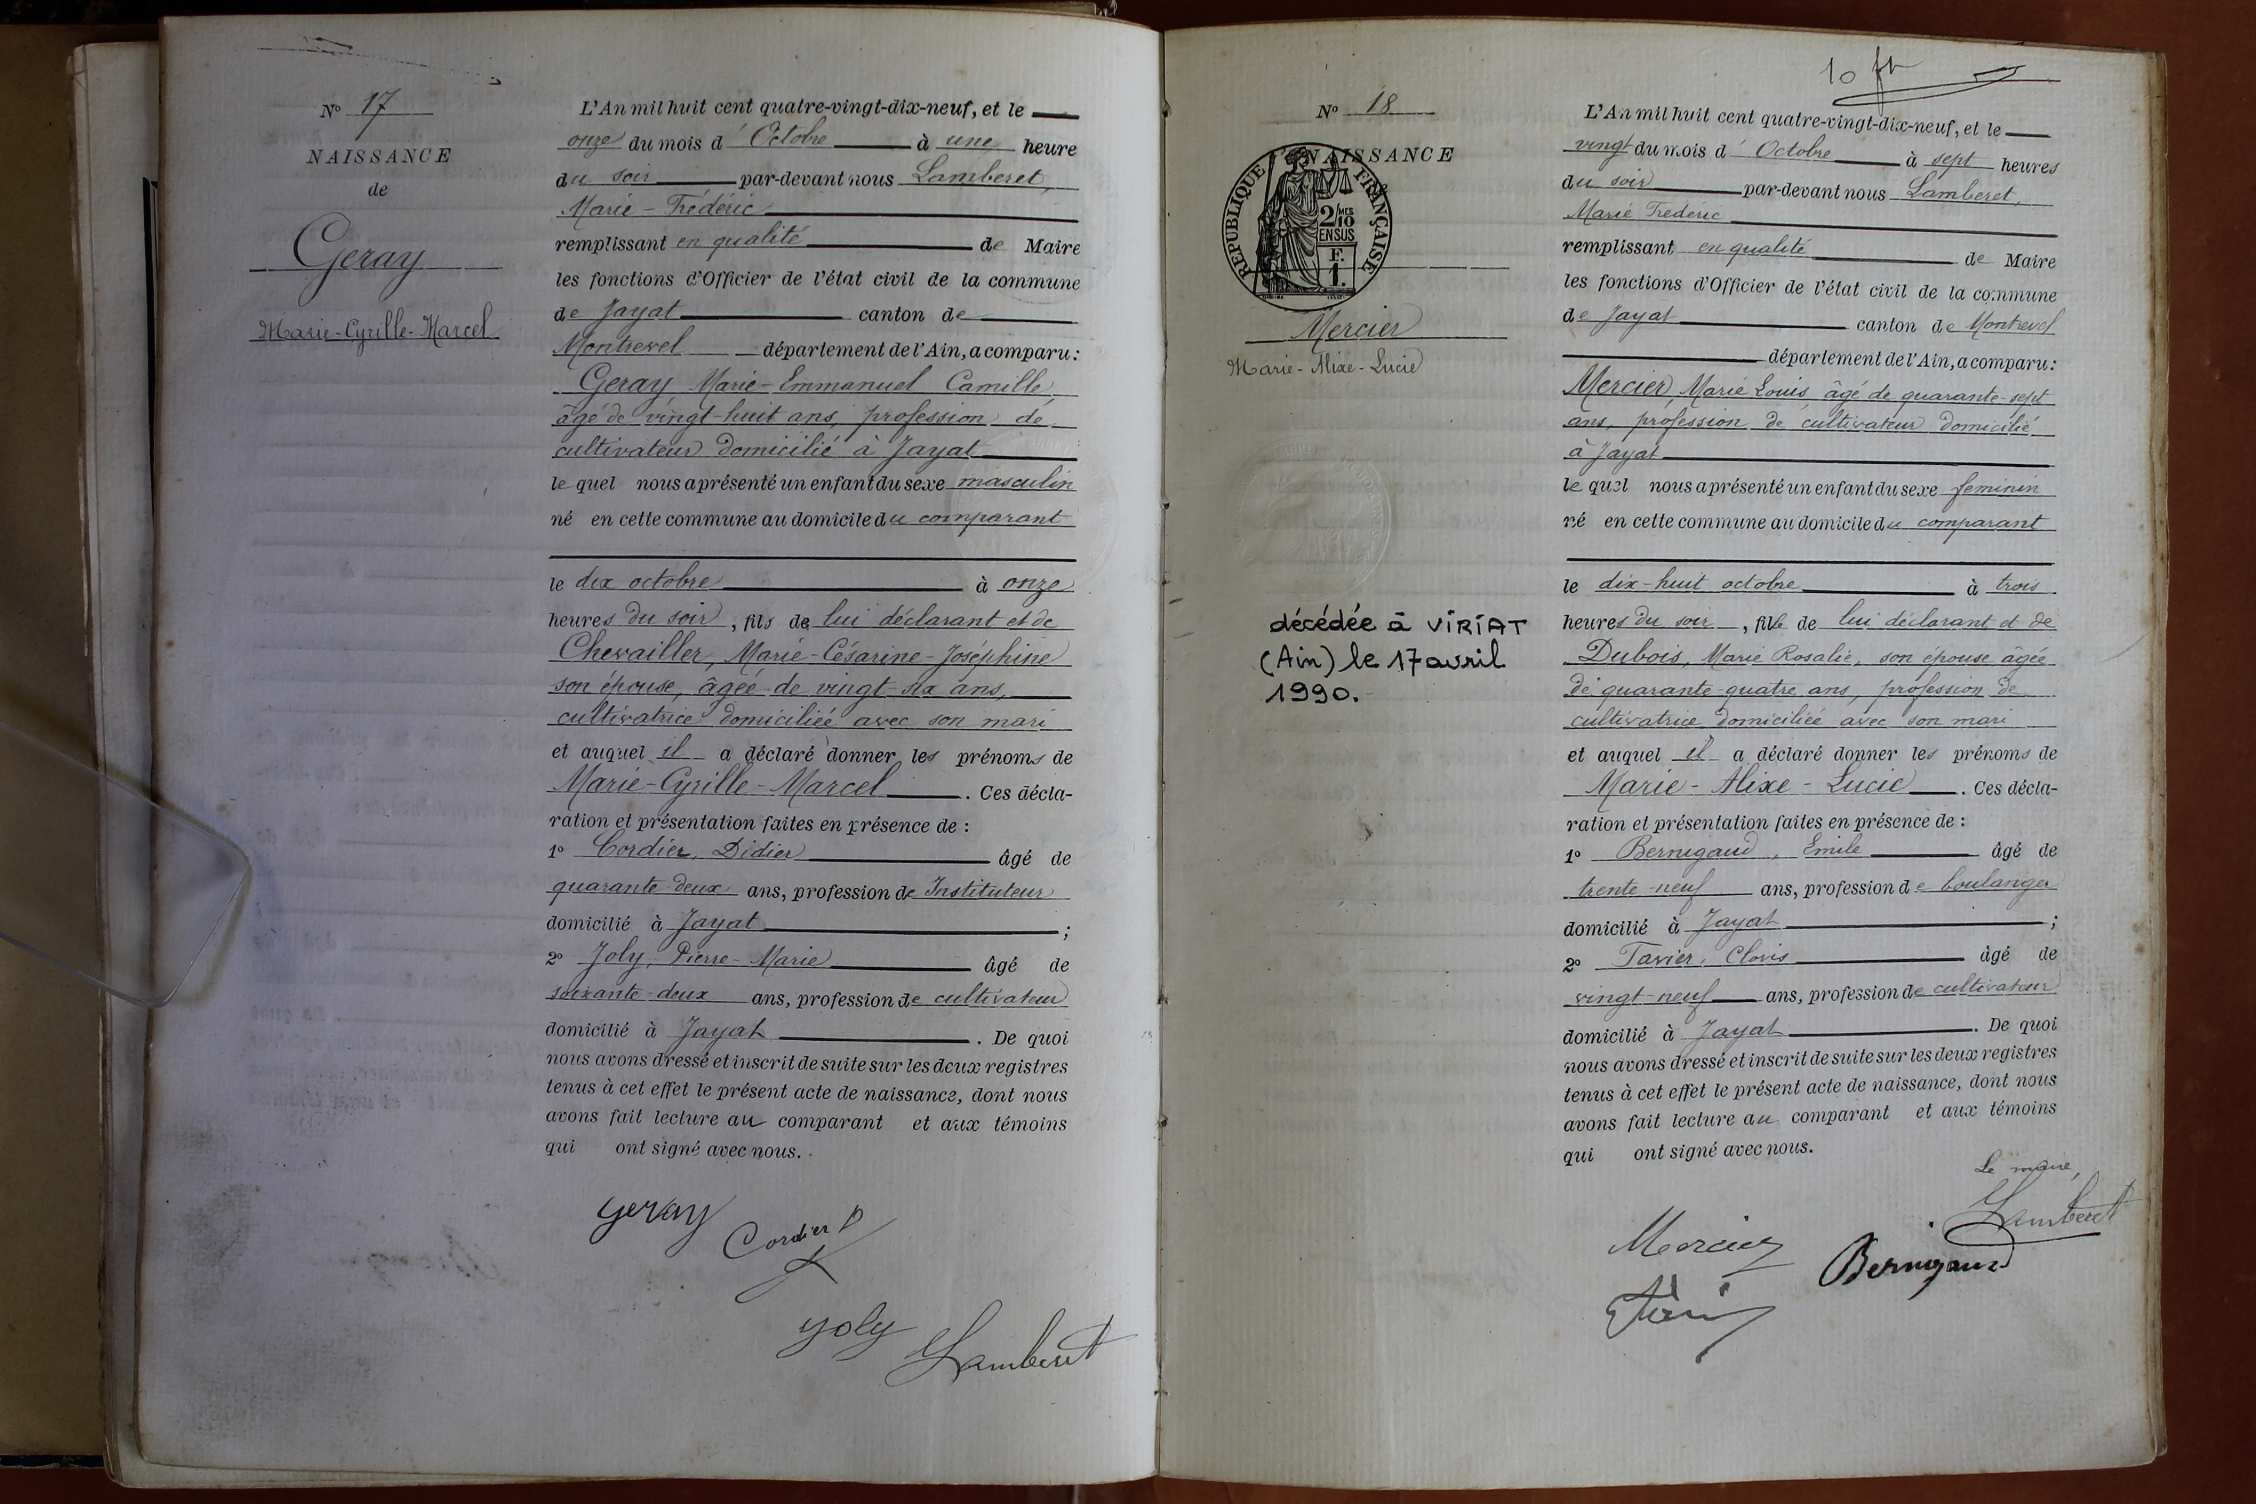 N° 17
NAISSANCE
de
Geray
Marie-Cyrille-Marcel
L'An mil huit cent quatre-vingt-dix-neuf, et le
onze du mois d'Octobre à une heure
du soir par-devant nous Lamberet,
Marie-Frédéric
remplissant en qualité de Maire
les fonctions d'Officier de l'état civil de la commune
de Jayat canton de
Montrevel département de l'Ain, a comparu :
Geray Marie-Emmanuel Camille,
âgé de vingt-huit ans, profession de
cultivateur domicilié à Jayat
le quel nous a présenté un enfant du sexe masculin
né en cette commune au domicile du comparant
le dix octobre à onze
heures du soir, fils de lui déclarant et de
Chevailler, Marie-Césarine-Joséphine
son épouse, âgée de vingt-six ans,
cultivatrice domiciliée avec son mari
et auquel il a déclaré donner les prénoms de
Marie-Cyrille-Marcel. Ces décla-
ration et présentation faites en présence de :
1° Cordier, Didier âgé de
quarante-deux ans, profession de Instituteur
domicilié à Jayat ;
2° Joly, Pierre-Marie âgé de
soixante-deux ans, profession de cultivateur
domicilié à Jayat. De quoi
nous avons dressé et inscrit de suite sur les deux registres
tenus à cet effet le présent acte de naissance, dont nous
avons fait lecture au comparant et aux témoins
qui ont signé avec nous.
Geray
Cordier D
Joly
Lamberet
10 ft
N° 18
NAISSANCE
REPUBLIQUE FRANÇAISE
2/10 MES
EN SUS
F.
1.
Mercier
Marie-Alixe-Lucie
décédée à VIRIAT
(Ain) le 17 avril
1990.
L'An mil huit cent quatre-vingt-dix-neuf, et le
vingt du mois d'Octobre à sept heures
du soir par-devant nous Lamberet,
Marie Frédéric
remplissant en qualité de Maire
les fonctions d'Officier de l'état civil de la commune
de Jayat canton de Montrevel
département de l'Ain, a comparu :
Mercier, Marie Louis, âgé de quarante-sept
ans, profession de cultivateur domicilié
à Jayat
le quel nous a présenté un enfant du sexe feminin
né en cette commune au domicile du comparant
le dix-huit octobre à trois
heures du soir, fille de lui déclarant et de
Dubois, Marie Rosalie, son épouse âgée
de quarante-quatre ans, profession de
cultivatrice domiciliée avec son mari
et auquel il a déclaré donner les prénoms de
Marie-Alixe-Lucie. Ces décla-
ration et présentation faites en présence de :
1° Bernigaud, Emile âgé de
trente-neuf ans, profession de boulanger
domicilié à Jayat ;
2° Tavier, Clovis âgé de
vingt-neuf ans, profession de cultivateur
domicilié à Jayat. De quoi
nous avons dressé et inscrit de suite sur les deux registres
tenus à cet effet le présent acte de naissance, dont nous
avons fait lecture au comparant et aux témoins
qui ont signé avec nous.
Le maire,
Lamberet
Mercier
Bernigaud